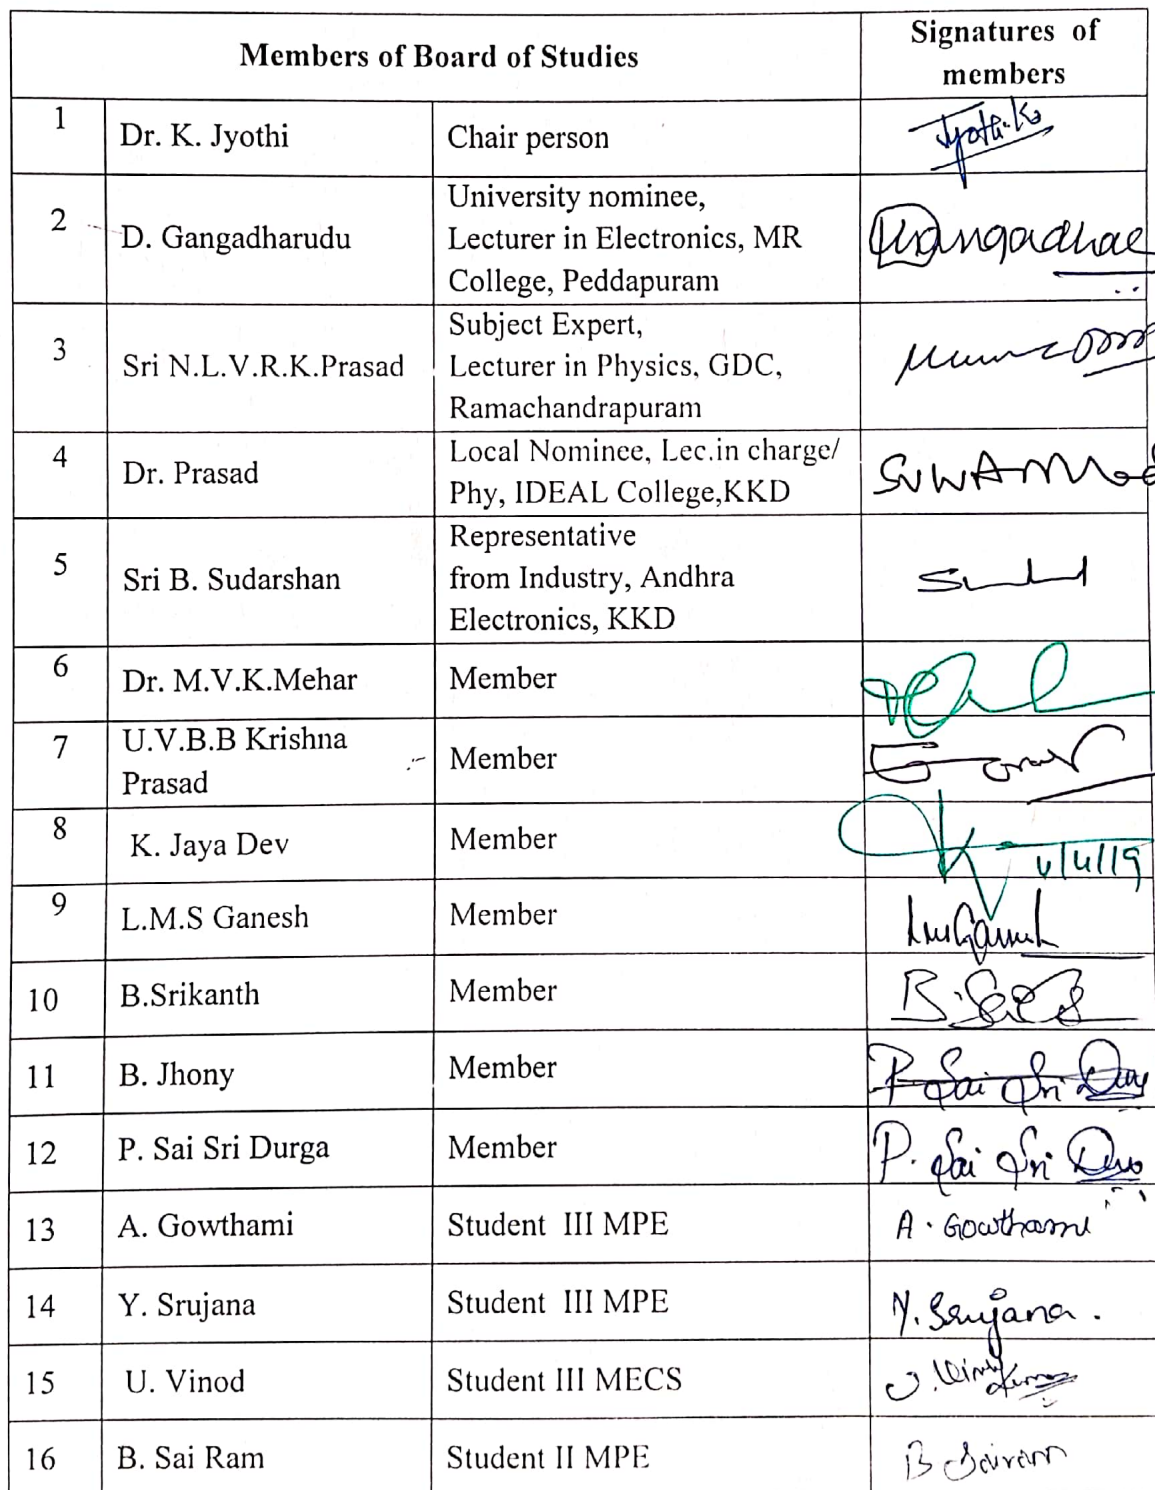 Members of Board of Studies
Signatures of
members
1
Dr. K. Jyothi
Chair person
Jyothi.K
2
D. Gangadharudu
University nominee,
Lecturer in Electronics, MR
College, Peddapuram
3
Sri N.L.V.R.K.Prasad
Subject Expert,
Lecturer in Physics, GDC,
Ramachandrapuram
4
Dr. Prasad
Local Nominee, Lec.in charge/
Phy, IDEAL College,KKD
5
Sri B. Sudarshan
Representative
from Industry, Andhra
Electronics, KKD
6
Dr. M.V.K.Mehar
Member
7
U.V.B.B Krishna
Prasad
Member
8
K. Jaya Dev
Member
9
L.M.S Ganesh
Member
10
B.Srikanth
Member
11
B. Jhony
Member
P Sai Sri
12
P. Sai Sri Durga
Member
P. Sai Sri
13
A. Gowthami
Student III MPE
A. Gowthami
14
Y. Srujana
Student III MPE
Y. Srujana.
15
U. Vinod
Student III MECS
16
B. Sai Ram
Student II MPE
B Sairam